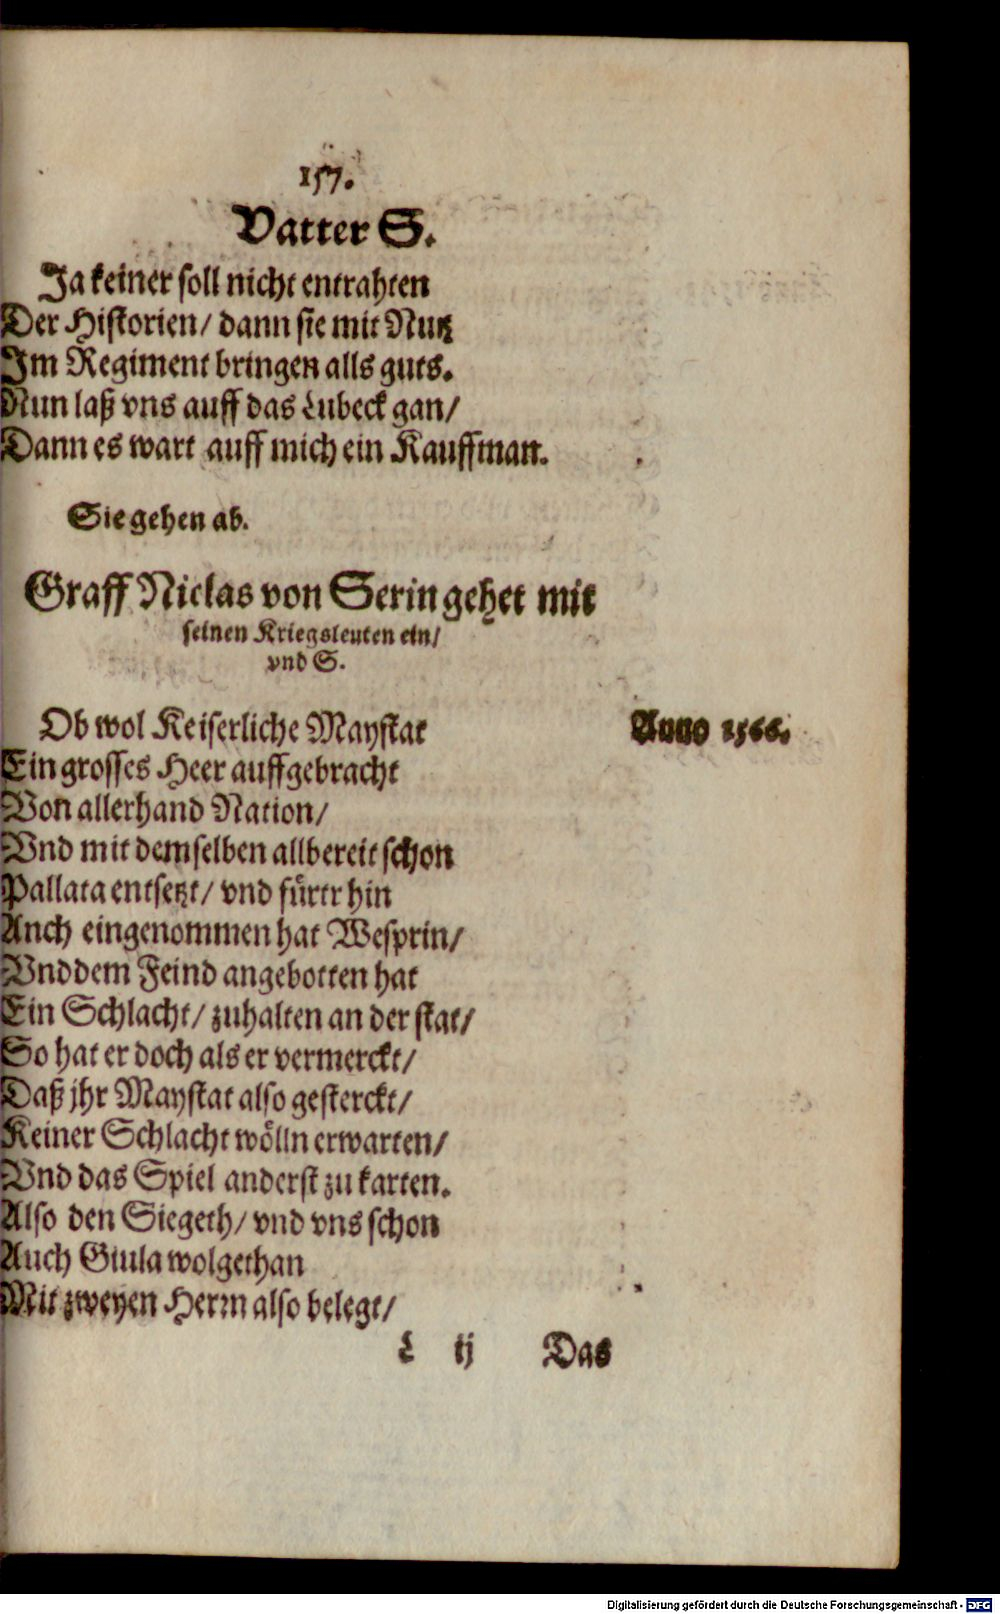 157.
Vatter S.
Ja keiner soll nicht entrahten
Der Historien/ dann sie mit Nutz
Im Regiment bringen alls guts.
Nun laß vns auff das Lubeck gan/
Dann es wart auff mich ein Kauffman.
Sie gehen ab.
Graff Niclas von Serin gehet mit
seinen Kriegsleuten ein/
vnd S.
Ob wol Keiserliche Maystat
Anno 1566.
Ein grosses Heer auffgebracht
Von allerhand Nation/
Vnd mit demselben allbereit schon
Pallata entsetzt/ vnd fürtr hin
Anch eingenommen hat Wesprin/
Vnd dem Feind angebotten hat
Ein Schlacht/ zuhalten an der stat/
So hat er doch als er vermerckt/
Daß jhr Maystat also gesterckt/
Keiner Schlacht wölln erwarten/
Vnd das Spiel anderst zu karten.
Also den Siegeth/ vnd vns schon
Auch Giula wolgethan
Mit zweyen Herrn also belegt/
L ij Das
Digitalisierung gefördert durch die Deutsche Forschungsgemeinschaft - DFG